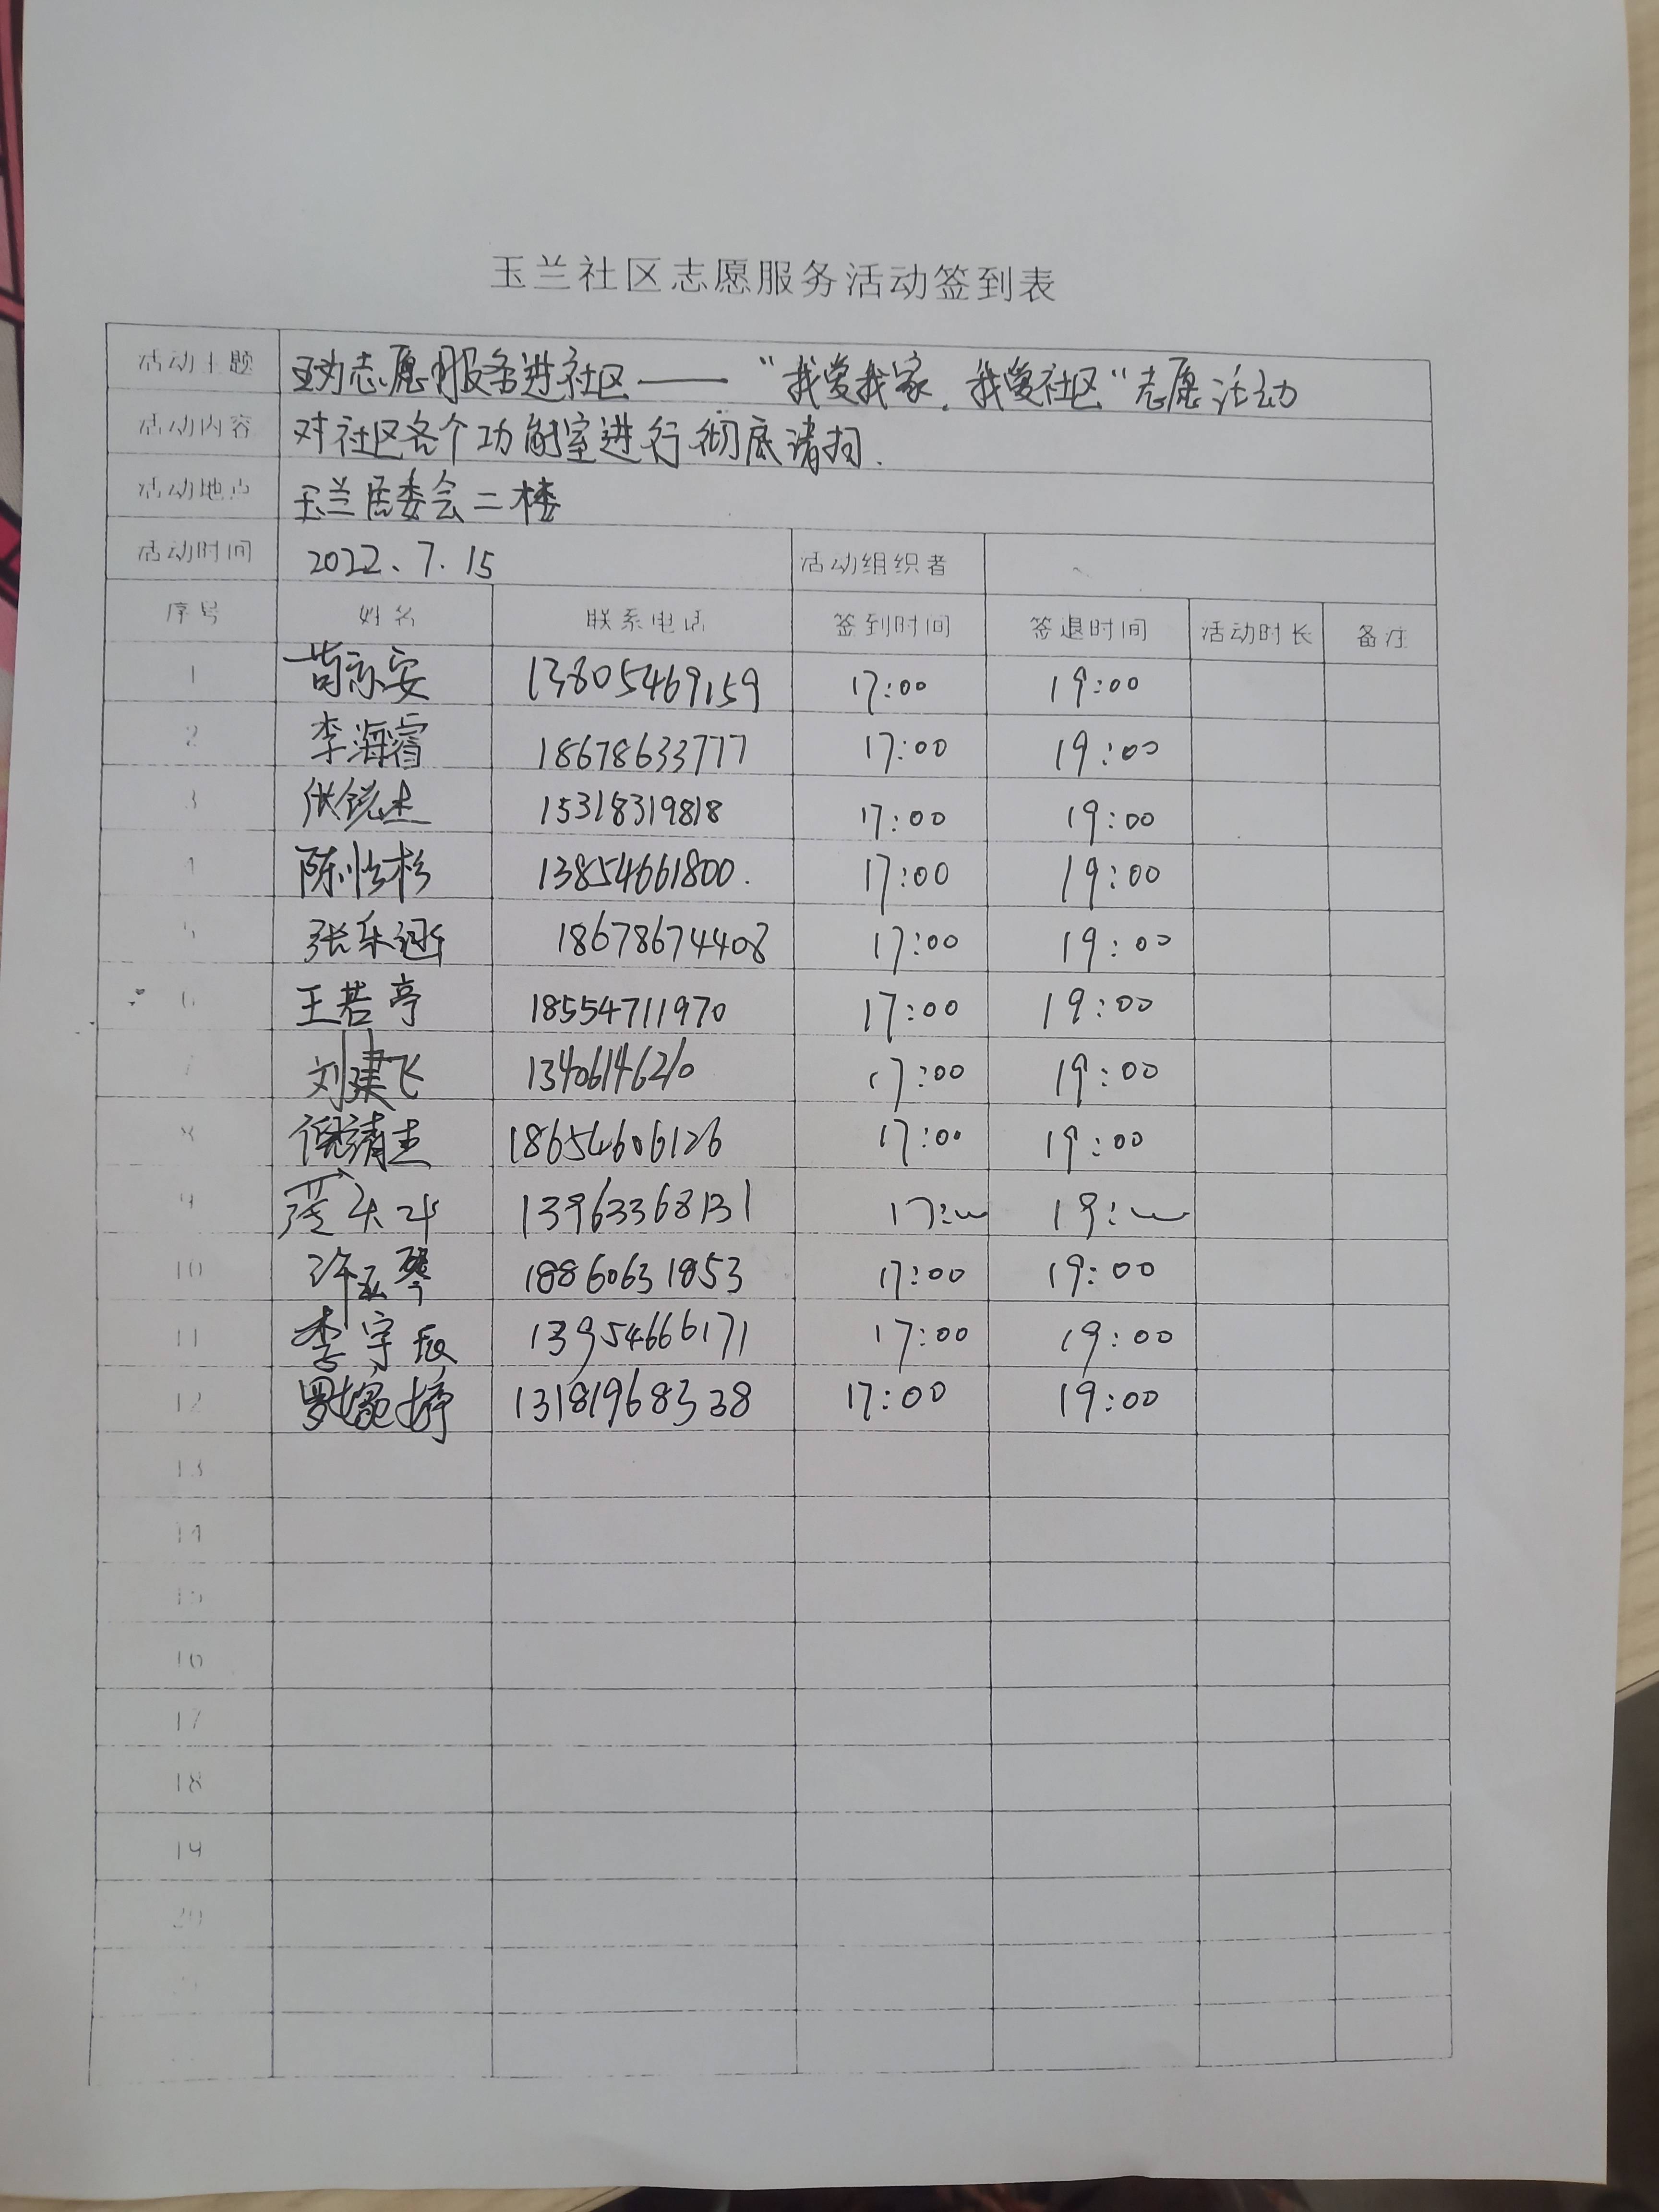 玉兰社区志愿服务活动签到表
活动主题 互动志愿服务进社区——“我爱我家,我爱社区”志愿活动
活动内容 对社区各个功能室进行彻底清扫.
活动地点 玉兰居委会二楼
活动时间 2022.7.15 活动组织者
序号 姓名 联系电话 签到时间 签退时间 活动时长 备注
1 苟亦安 13805469159 17:00 19:00
2 李海睿 18678633777 17:00 19:00
3 张锐杰 15318319818 17:00 19:00
4 陈怡杉 13854661800. 17:00 19:00
5 张乐 18678674408 17:00 19:00
6 王若亭 18554711970 17:00 19:00
7 刘建飞 13406146210 17:00 19:00
8 倪靖杰 18654606126 17:00 19:00
9 13963368131 17:00 19:00
10 许玉琴 18860631853 17:00 19:00
11 李宇辰 13954666171 17:00 19:00
12 罗婉婷 13181968338 17:00 19:00
13
14
15
16
17
18
19
20